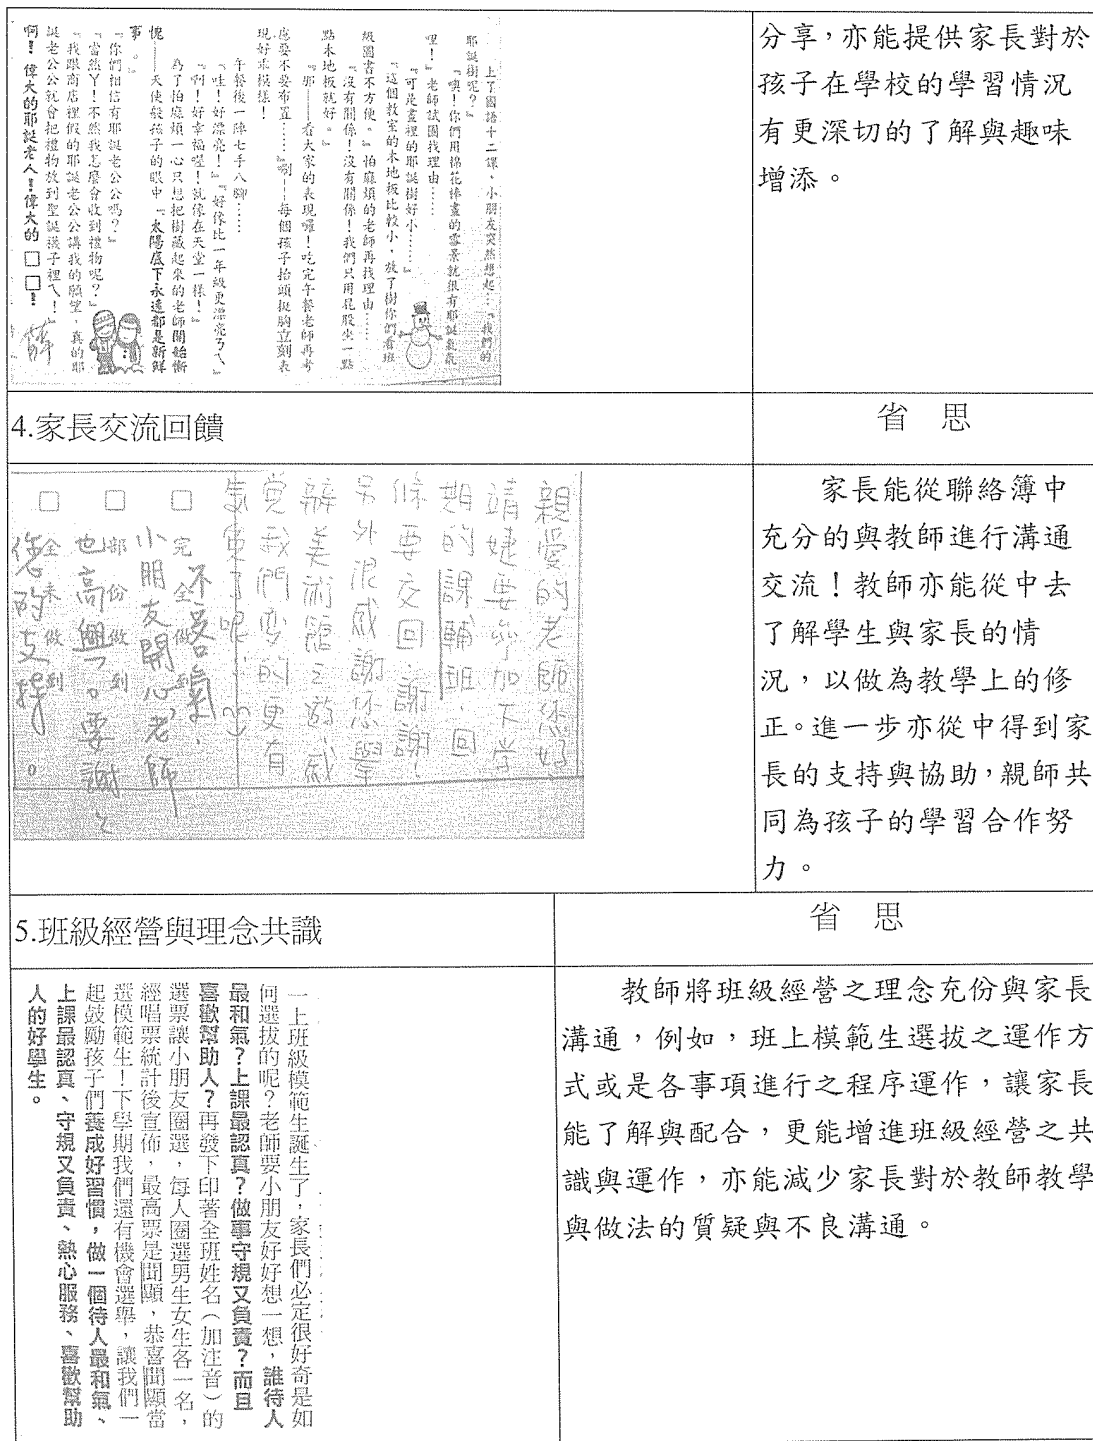 上了國語十二課，小朋友突然想起…『我們的
耶誕樹呢？』
『噢！你們用棉花棒畫的雪景就很有耶誕氣氛
哩！』老師試圖找理由……
『可是畫裡的耶誕樹好小……』
『這個教室的木地板比較小，放了樹你們看班
級圖書不方便。』怕麻煩的老師再找理由……
『沒有關係！沒有關係！我們只用屁股坐一點
點木地板就好。』
『那——看大家的表現囉！吃完午餐老師再考
慮要不要布置……』唰——每個孩子抬頭挺胸立刻表
現好乖模樣！
午餐後一陣七手八腳……
『哇！好漂亮！』『好像比一年級更漂亮ㄋㄟ』
『啊！好幸福喔！就像在天堂一樣！』
為了怕麻煩一心只想把樹藏起來的老師開始慚
愧——天使般孩子的眼中『太陽底下永遠都是新鮮
事。』
『你們相信有耶誕老公公嗎？』
『當然ㄚ！不然我怎麼會收到禮物呢？』
『我跟商店裡假的耶誕老公公講我的願望，真的耶
誕老公公就會把禮物放到聖誕襪子裡ㄟ！』
啊！偉大的耶誕老人！偉大的□□！
薛
分享，亦能提供家長對於
孩子在學校的學習情況
有更深切的了解與趣味
增添。
4.家長交流回饋
省 思
親愛的老師您好
靖婕要參加下學
期的課輔班，回
條要交回，謝謝！
另外很感謝您舉
辦美術館之遊，感
覺我們變的更有
氣質了呢！
不客氣，
小朋友開心，老師
也高興了。要謝謝
您的支持。
□完全做到
□部份做到
□全未做到
家長能從聯絡簿中
充分的與教師進行溝通
交流！教師亦能從中去
了解學生與家長的情
況，以做為教學上的修
正。進一步亦從中得到家
長的支持與協助，親師共
同為孩子的學習合作努
力。
5.班級經營與理念共識
省 思
一上班級模範生誕生了，家長們必定很好奇是如
何選拔的呢？老師要小朋友好好想一想，誰待人
最和氣？上課最認真？做事守規又負責？而且
喜歡幫助人？再發下印著全班姓名（加注音）的
選票讓小朋友圈選，每人圈選男生女生各一名，
經唱票統計後宣佈，最高票是聞顯，恭喜聞顯當
選模範生！下學期我們還有機會選舉，讓我們一
起鼓勵孩子們養成好習慣，做一個待人最和氣、
上課最認真、守規又負責、熱心服務、喜歡幫助
人的好學生。
教師將班級經營之理念充份與家長
溝通，例如，班上模範生選拔之運作方
式或是各事項進行之程序運作，讓家長
能了解與配合，更能增進班級經營之共
識與運作，亦能減少家長對於教師教學
與做法的質疑與不良溝通。